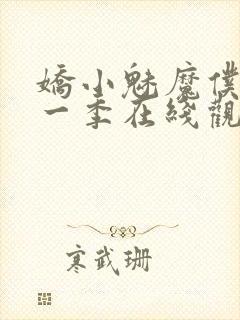 嬌小魅魔僕
一季在綫觀
寒武珊